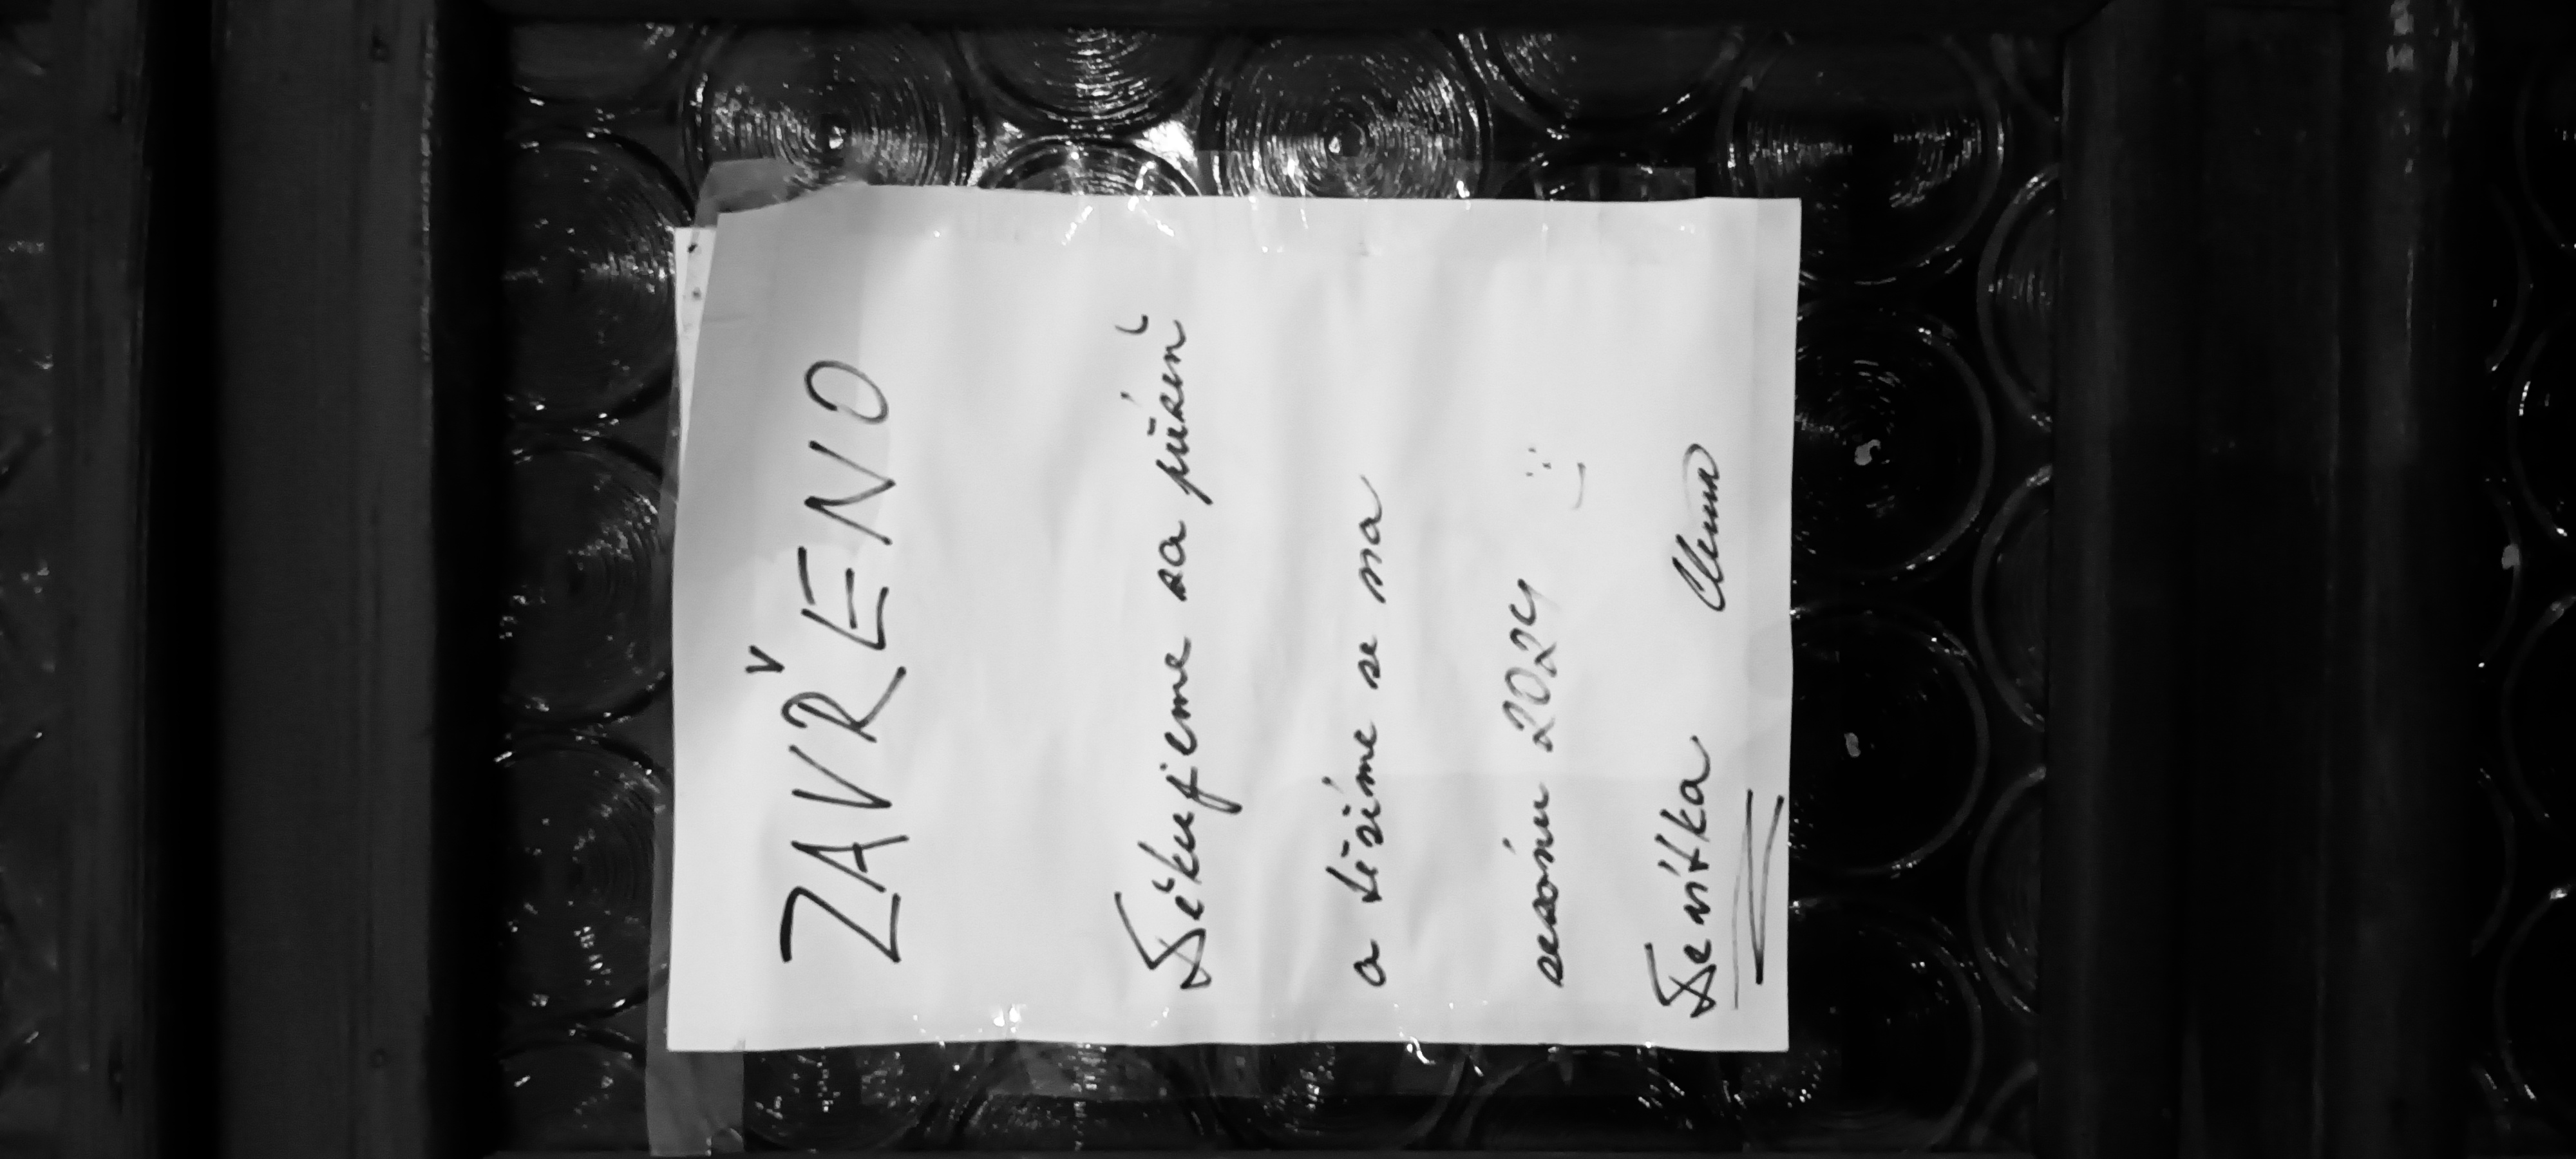 ZAVŘENO
Děkujeme za přízeň
a těšíme se na
sezónu 2024 :-)
Devítka